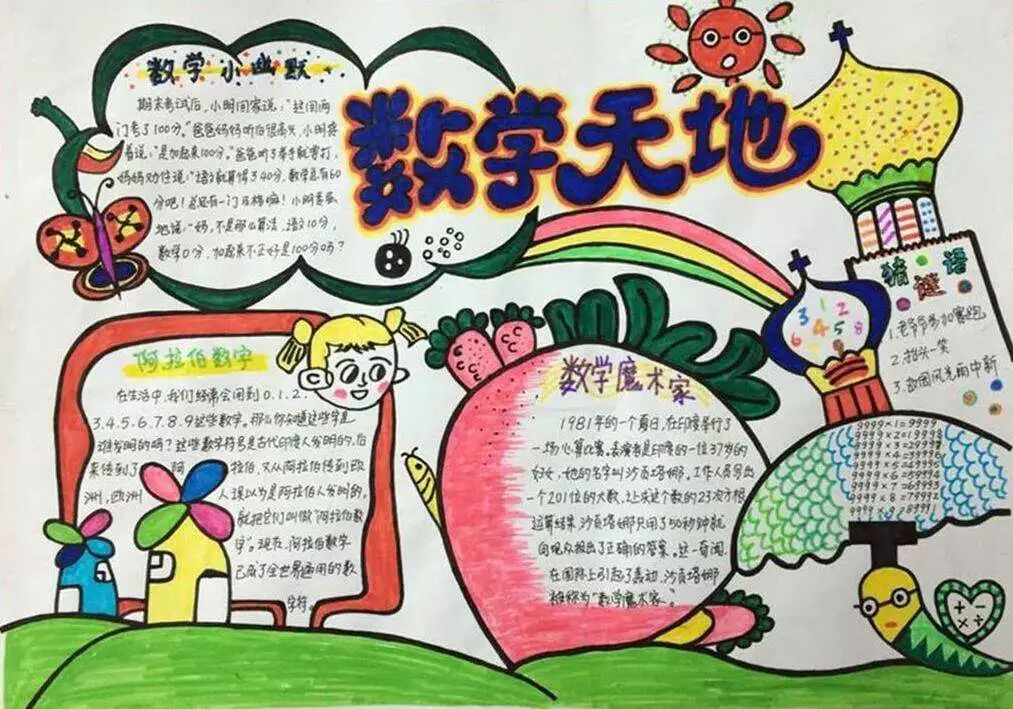 数学天地
数学小幽默
期末考试后，小明回家说：“这回两
门考了100分。”爸爸妈妈听后很高兴，小明接
着说：“是加起来100分。”爸爸听了举手就要打，
妈妈劝住说：“语文就算得了40分，数学总有60
分吧！总还有一门及格嘛！小明委屈
地说：“妈，不是那么算法，语文10分，
数学0分，加起来不正好是100分吗？
阿拉伯数字
在生活中，我们经常会用到0.1.2.
3.4.5.6.7.8.9这些数字。那么你知道这些字是
谁发明的吗？这些数字符号是古代印度人发明的，后
来传到了阿拉伯，又从阿拉伯传到欧
洲，欧洲人误以为是阿拉伯人发明的，
就把它们叫做“阿拉伯数
字”。现在，阿拉伯数字
已成了全世界通用的数
字符。
数学魔术家
1981年的一个夏日，在印度举行了
一场心算比赛。表演者是印度的一位37岁的
妇女，她的名字叫沙贡塔娜。工作人员写出
一个201位的大数，让求这个数的23次方根
运算结果，沙贡塔娜只用了50秒钟就
向观众报出了正确的答案。这一奇闻
在国际上引起了轰动，沙贡塔娜
被称为“数学魔术家”。
猜谜语
1.老爷爷参加赛跑
2.抬头一笑
3.故国风光雨中新
3 1 2
6 4 5 8
9999×1=9999
9999×2=19998
9999×7=69993
9999×8=79992
+ -
× ÷